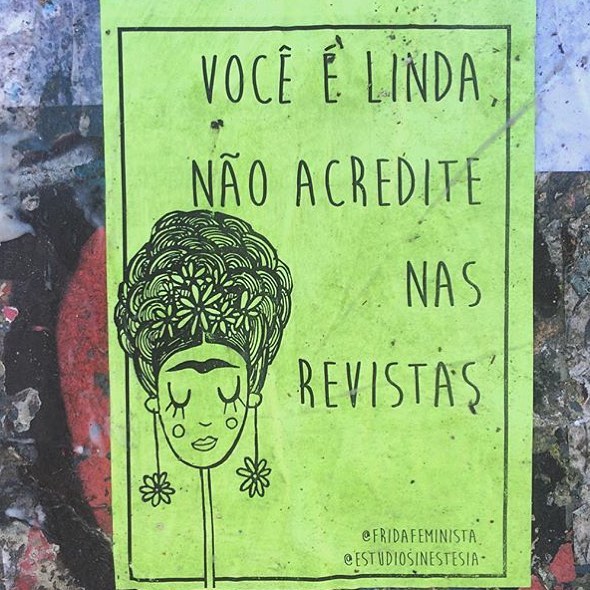 VOCÊ É LINDA
NÃO ACREDITE
NAS
REVISTAS
@FRIDAFEMINISTA
@ESTUDIOSINESTESIA